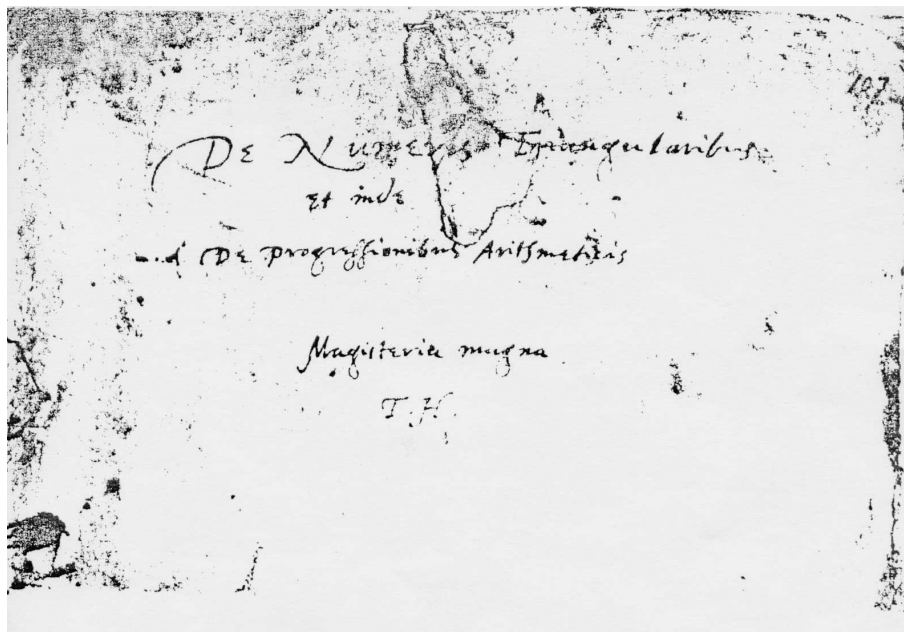 107
De Numeris Triangularibus
et inde
De progressionibus Arithmeticis
Magisteria magna
T. H.